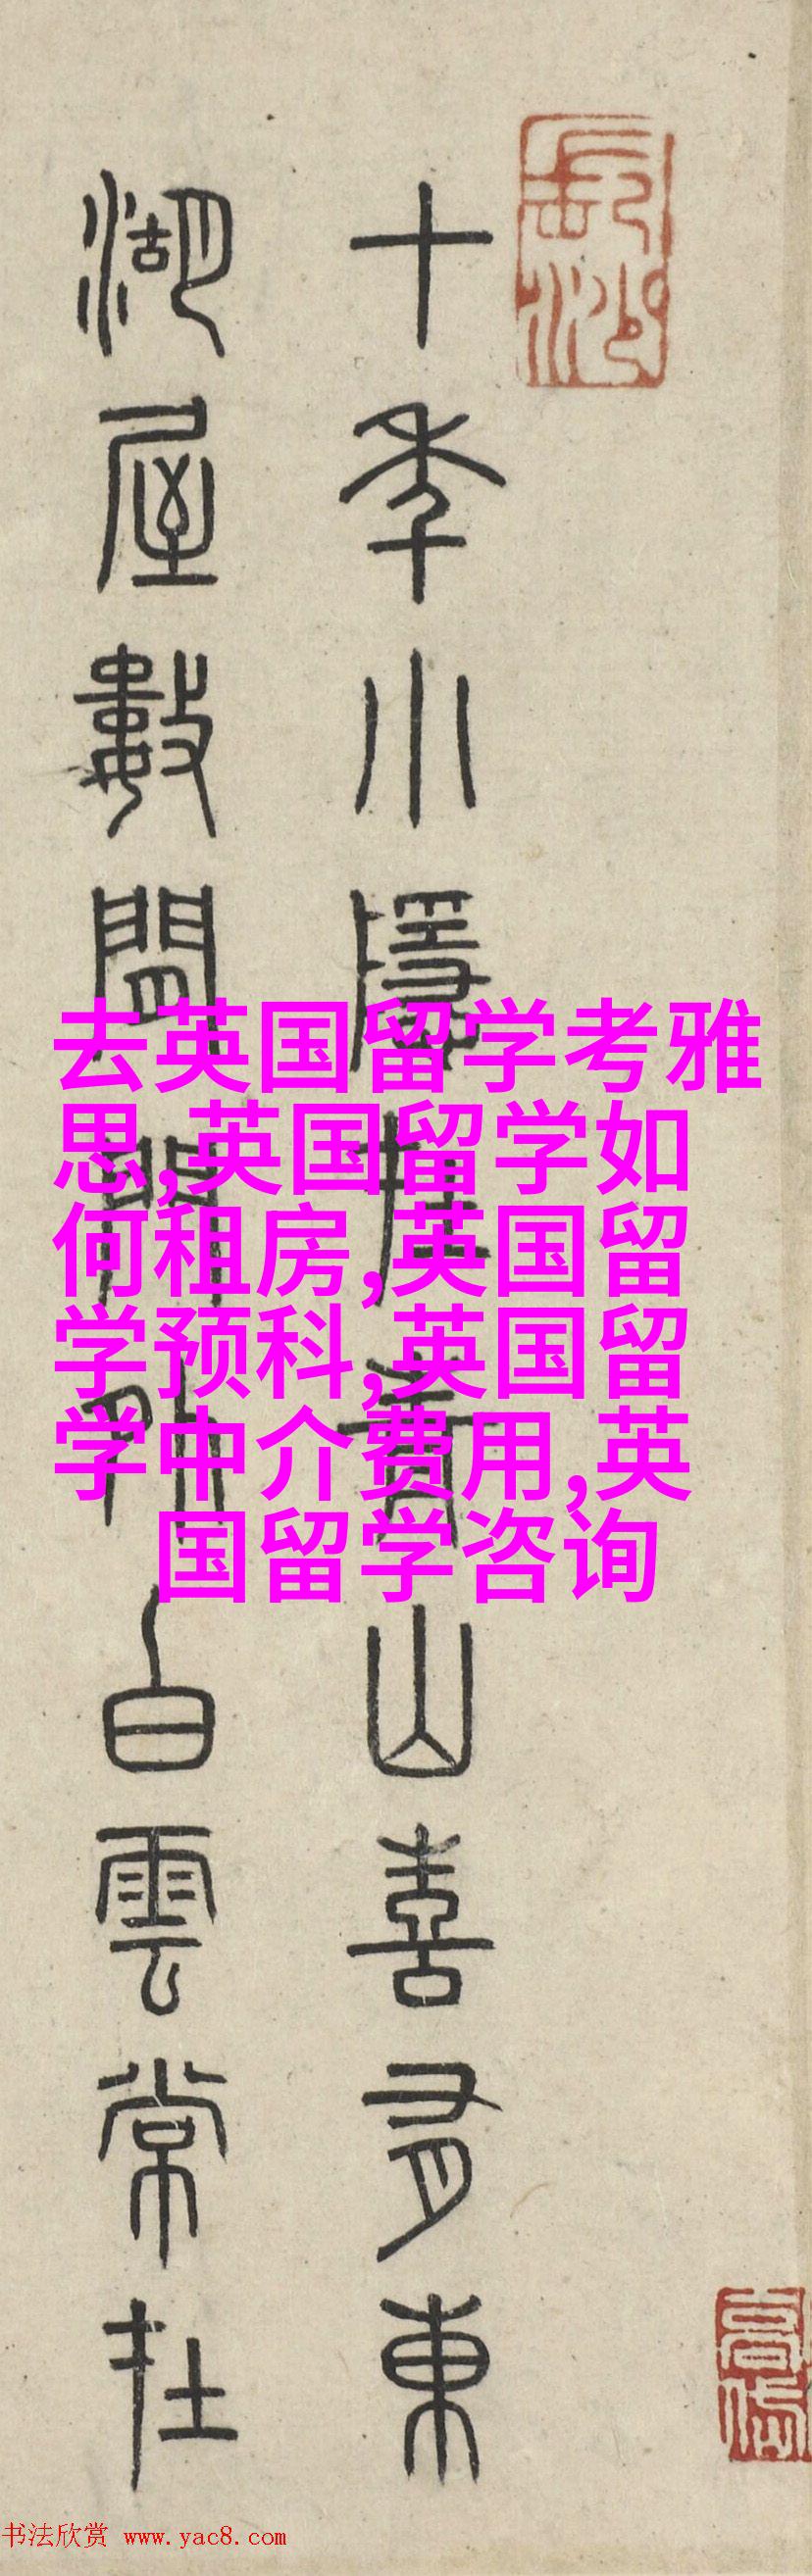 十年小隱在青山喜有東
湖屋數間門外白雲常在
去英国留学考雅
思,英国留学如
何租房,英国留
学预科,英国留
学中介费用,英
国留学咨询
书法欣赏 www.yac8.com